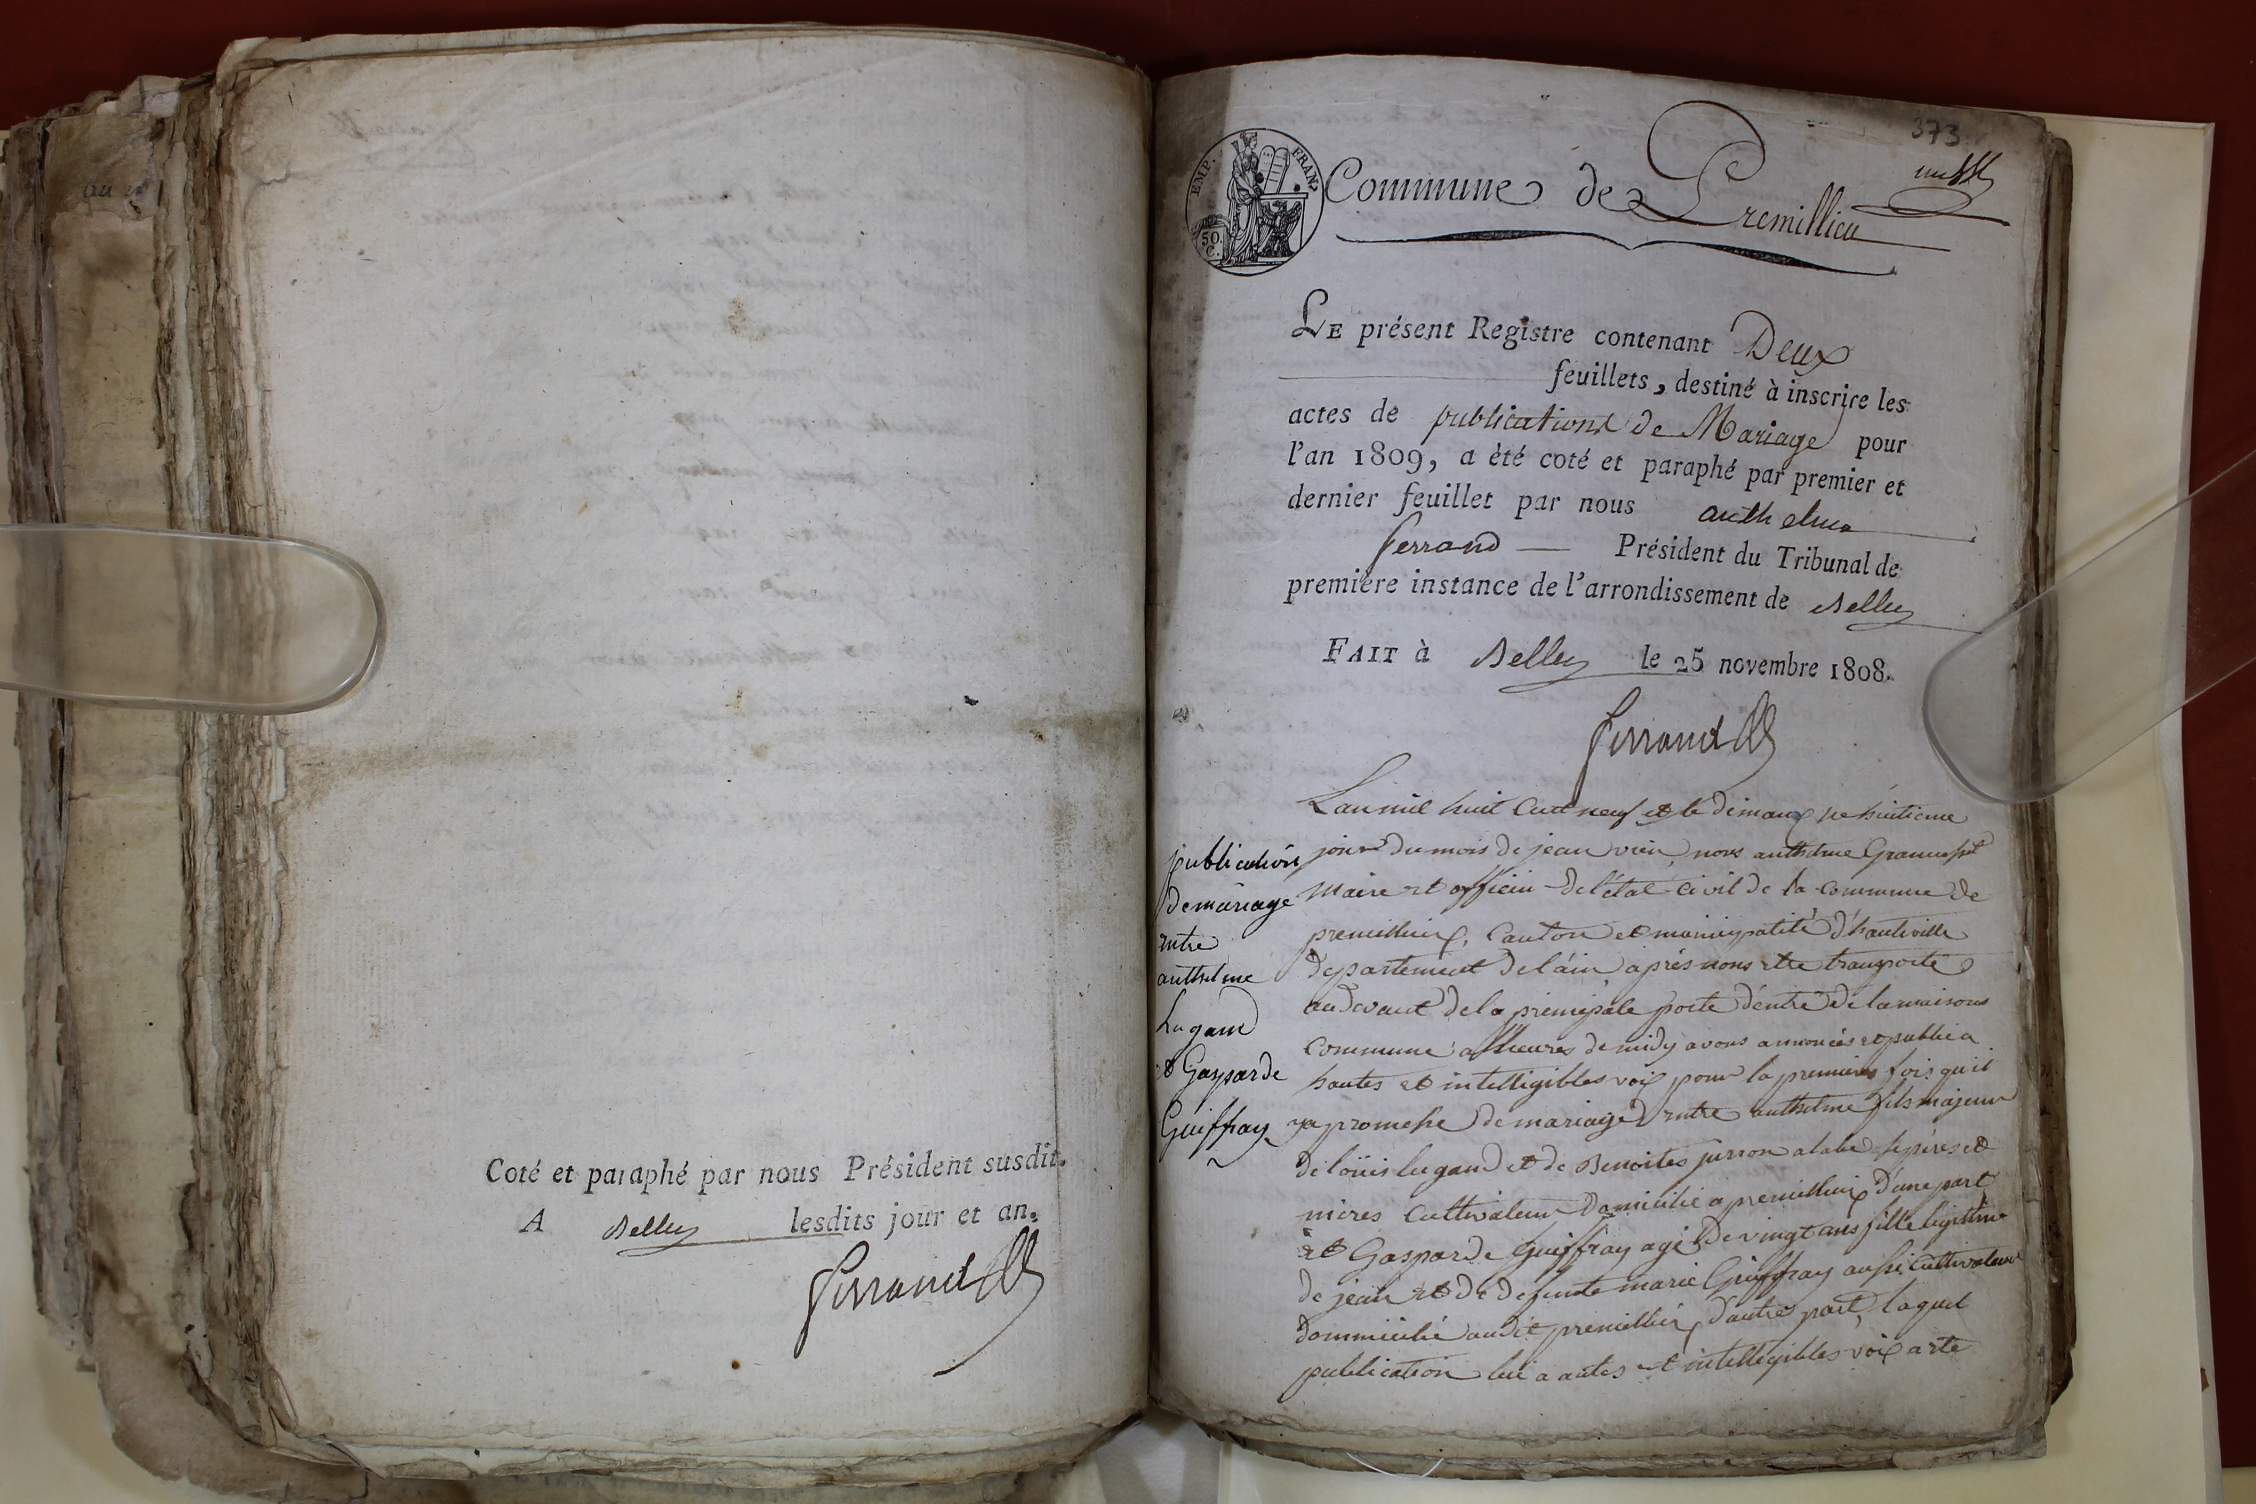 Coté et paraphé par nous Président susdit.
A Belley lesdits jour et an.
Ferrand
373
EMP. FRAN.
50 C.
Commune de Premillieu
LE présent Registre contenant Deux
feuillets, destiné à inscrire les
actes de publications de Mariage pour
l'an 1809, a été coté et paraphé par premier et
dernier feuillet par nous anthelme
ferrand — Président du Tribunal de
premiere instance de l'arrondissement de Belley
FAIT à Belley le 25 novembre 1808.
Ferrand
publication
de mariage
entre
anthelme
Lugand
et Gasparde
Guiffray
L'an mil huit Cent neuf et le dimanche huitieme
jour du mois de jeanvieu nous anthelme
Maire et officiu de l'état Civil de la commune de
premillieu, Canton et municipalité d'hauteville
departement de l'ain après nous etre transporté
au devant de la principale porte d'entré de la maisons
Commune a lheures de midy avons annoncés et publié a
hautes et intelligibles voix pour la premiere fois qu'il
ya promesse de mariage entre anthelme fils majeur
de loüis lugand et de Benoites jurron pères et
mères Cultivateur Domicilié a premillieu d'une part
et Gasparde Guiffray agé de vingt ans fille legitime
de jean et de defunte marie Guiffray aussi Cultivateur
dommicilié audit premillieu d'autre part, laquel
publication lui a autes et intellegibles voix a ete